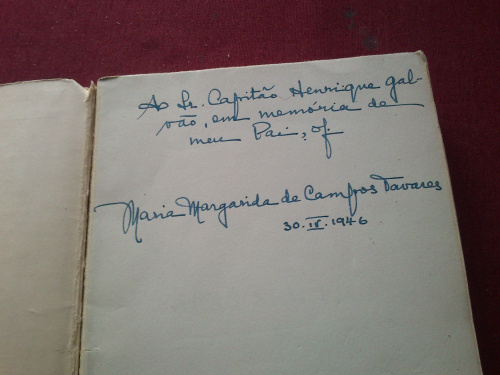 Ao Sr. Capitão Henrique Gal-
vão, em memória de
meu Pai, of.
Maria Margarida de Campos Tavares
30.IV.1946